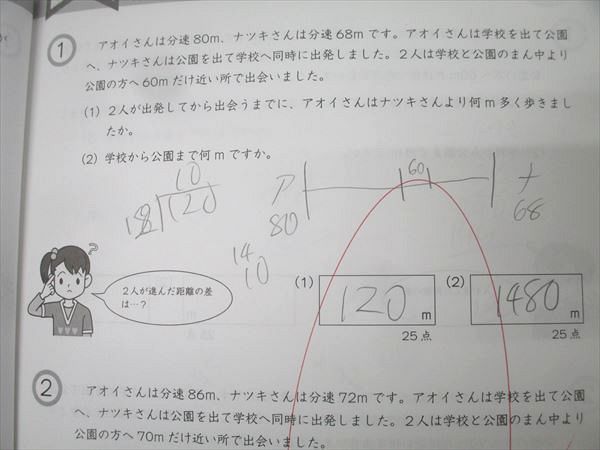 1 アオイさんは分速80m、ナツキさんは分速68mです。アオイさんは学校を出て公園
へ、ナツキさんは公園を出て学校へ同時に出発しました。2人は学校と公園のまん中より
公園の方へ60mだけ近い所で出会いました。
(1) 2人が出発してから出会うまでに、アオイさんはナツキさんより何m多く歩きまし
たか。
(2) 学校から公園まで何mですか。
10
120
ア
60
ナ
80
68
14
10
?
2人が進んだ距離の差
は…?
(1) 120 m
25点
(2) 1480 m
25点
2 アオイさんは分速86m、ナツキさんは分速72mです。アオイさんは学校を出て公園
へ、ナツキさんは公園を出て学校へ同時に出発しました。2人は学校と公園のまん中より
公園の方へ70mだけ近い所で出会いました。